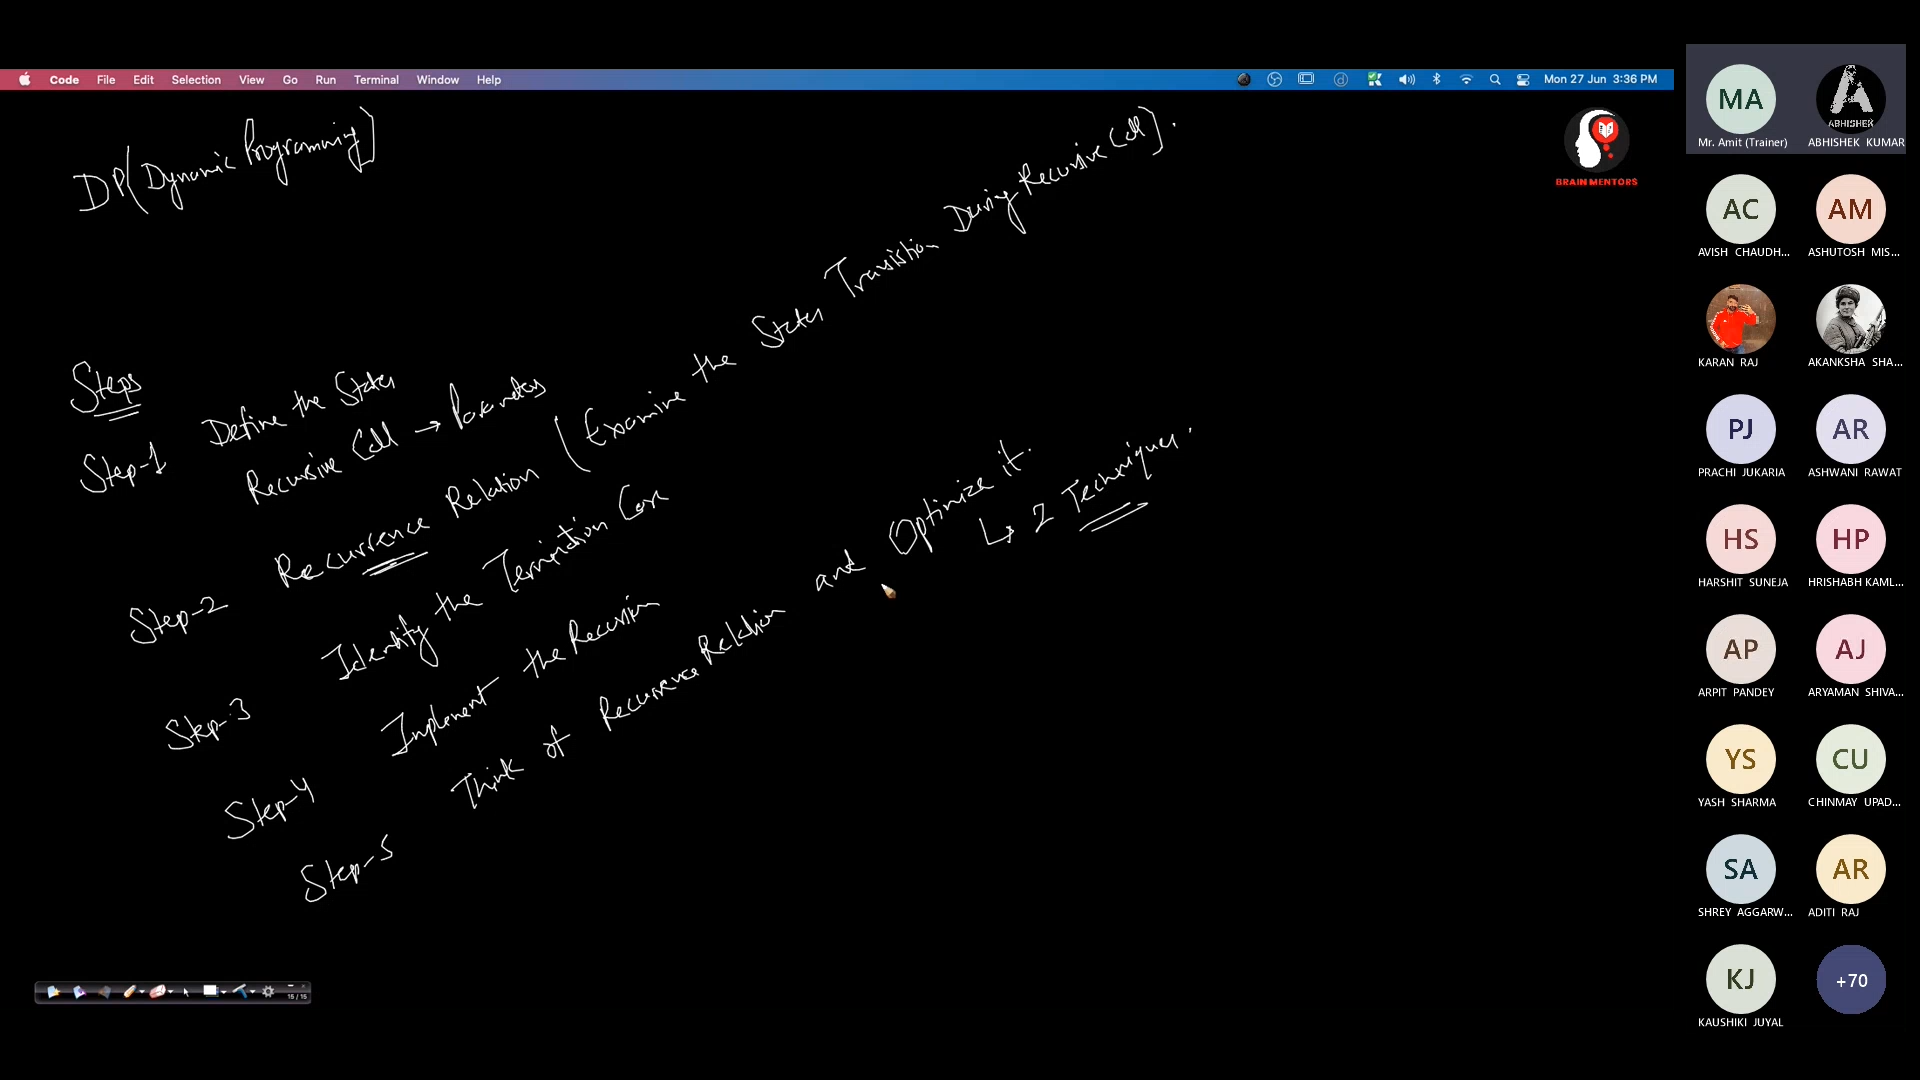 Code File Edit Selection View Go Run Terminal Window Help Mon 27 Jun 3:36 PM
DP (Dynamic Programming)
BRAIN MENTORS
Steps
Step-1 Define the States
Recursive Call → Parameters
Step-2 Recurrence Relation (Examine the States Transistion During Recursive Call).
Step-3 Identify the Termination Case
Step-4 Implement the Recursion
Step-5 Think of Recurrence Relation and Optimize it.
↳ 2 Techniques.
15 / 15
MA
Mr. Amit (Trainer)
ABHISHEK
ABHISHEK KUMAR
AC
AVISH CHAUDH...
AM
ASHUTOSH MIS...
KARAN RAJ
AKANKSHA SHA...
PJ
PRACHI JUKARIA
AR
ASHWANI RAWAT
HS
HARSHIT SUNEJA
HP
HRISHABH KAML...
AP
ARPIT PANDEY
AJ
ARYAMAN SHIVA...
YS
YASH SHARMA
CU
CHINMAY UPAD...
SA
SHREY AGGARW...
AR
ADITI RAJ
KJ
KAUSHIKI JUYAL
+70